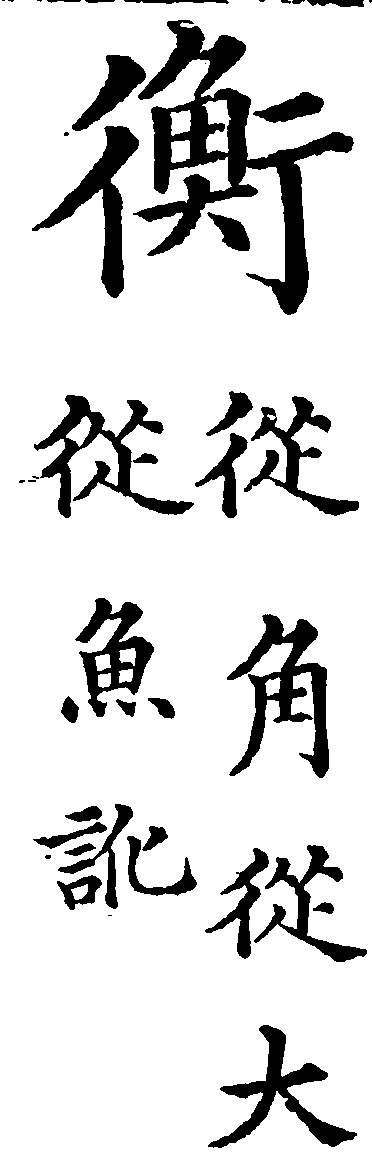 衡
從角從大
從魚訛